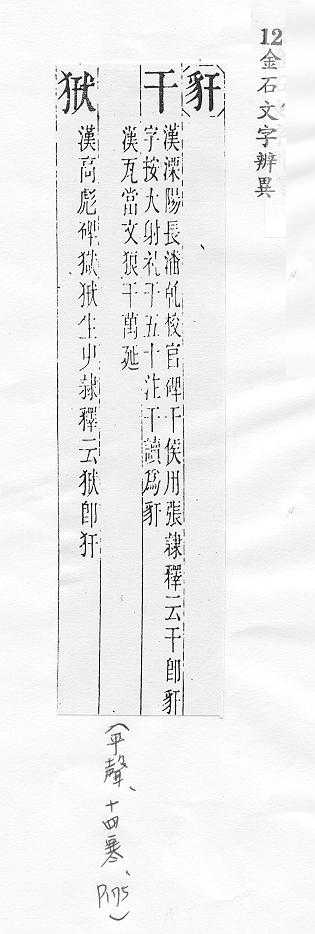 12金石文字辨異
豻
干
漢溧陽長潘乹校官碑干侯用張隸釋云干卽豻
字按大射礼干五十注干讀爲豻
漢瓦當文狼干萬延
犾
漢高彪碑獄犾生屮隸釋云犾卽犴
(平聲、十四寒、P175)